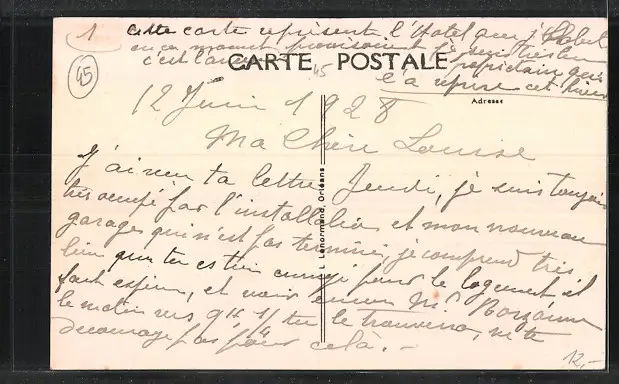 1 cette carte représente l'Hotel que j'habite
en ce moment provisoirement je suis très bien
c'est l'ancien propriétaire qui
l'a reprise cet hiver
CARTE POSTALE
45
45
Adresse
12 Juin 1928
Ma Chère Louise
J'ai reçu ta lettre Jeudi, je suis toujours
très occupé par l'installation et mon nouveau
garage qui n'est pas terminé, je comprend très
bien que tu es bien ennuyé pour le logement il
faut espérer, et voir encore Mr
le matin vers 9h 1/4 tu le trouveras, ne te
décourage pas pour celà. -
L. Lenormand, Orléans
12,-